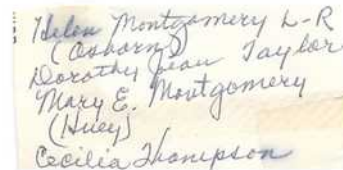 Helen Montgomery L-R
(Osborn)
Dorothy Jean Taylor
Mary E. Montgomery
(Huey)
Cecilia Thompson